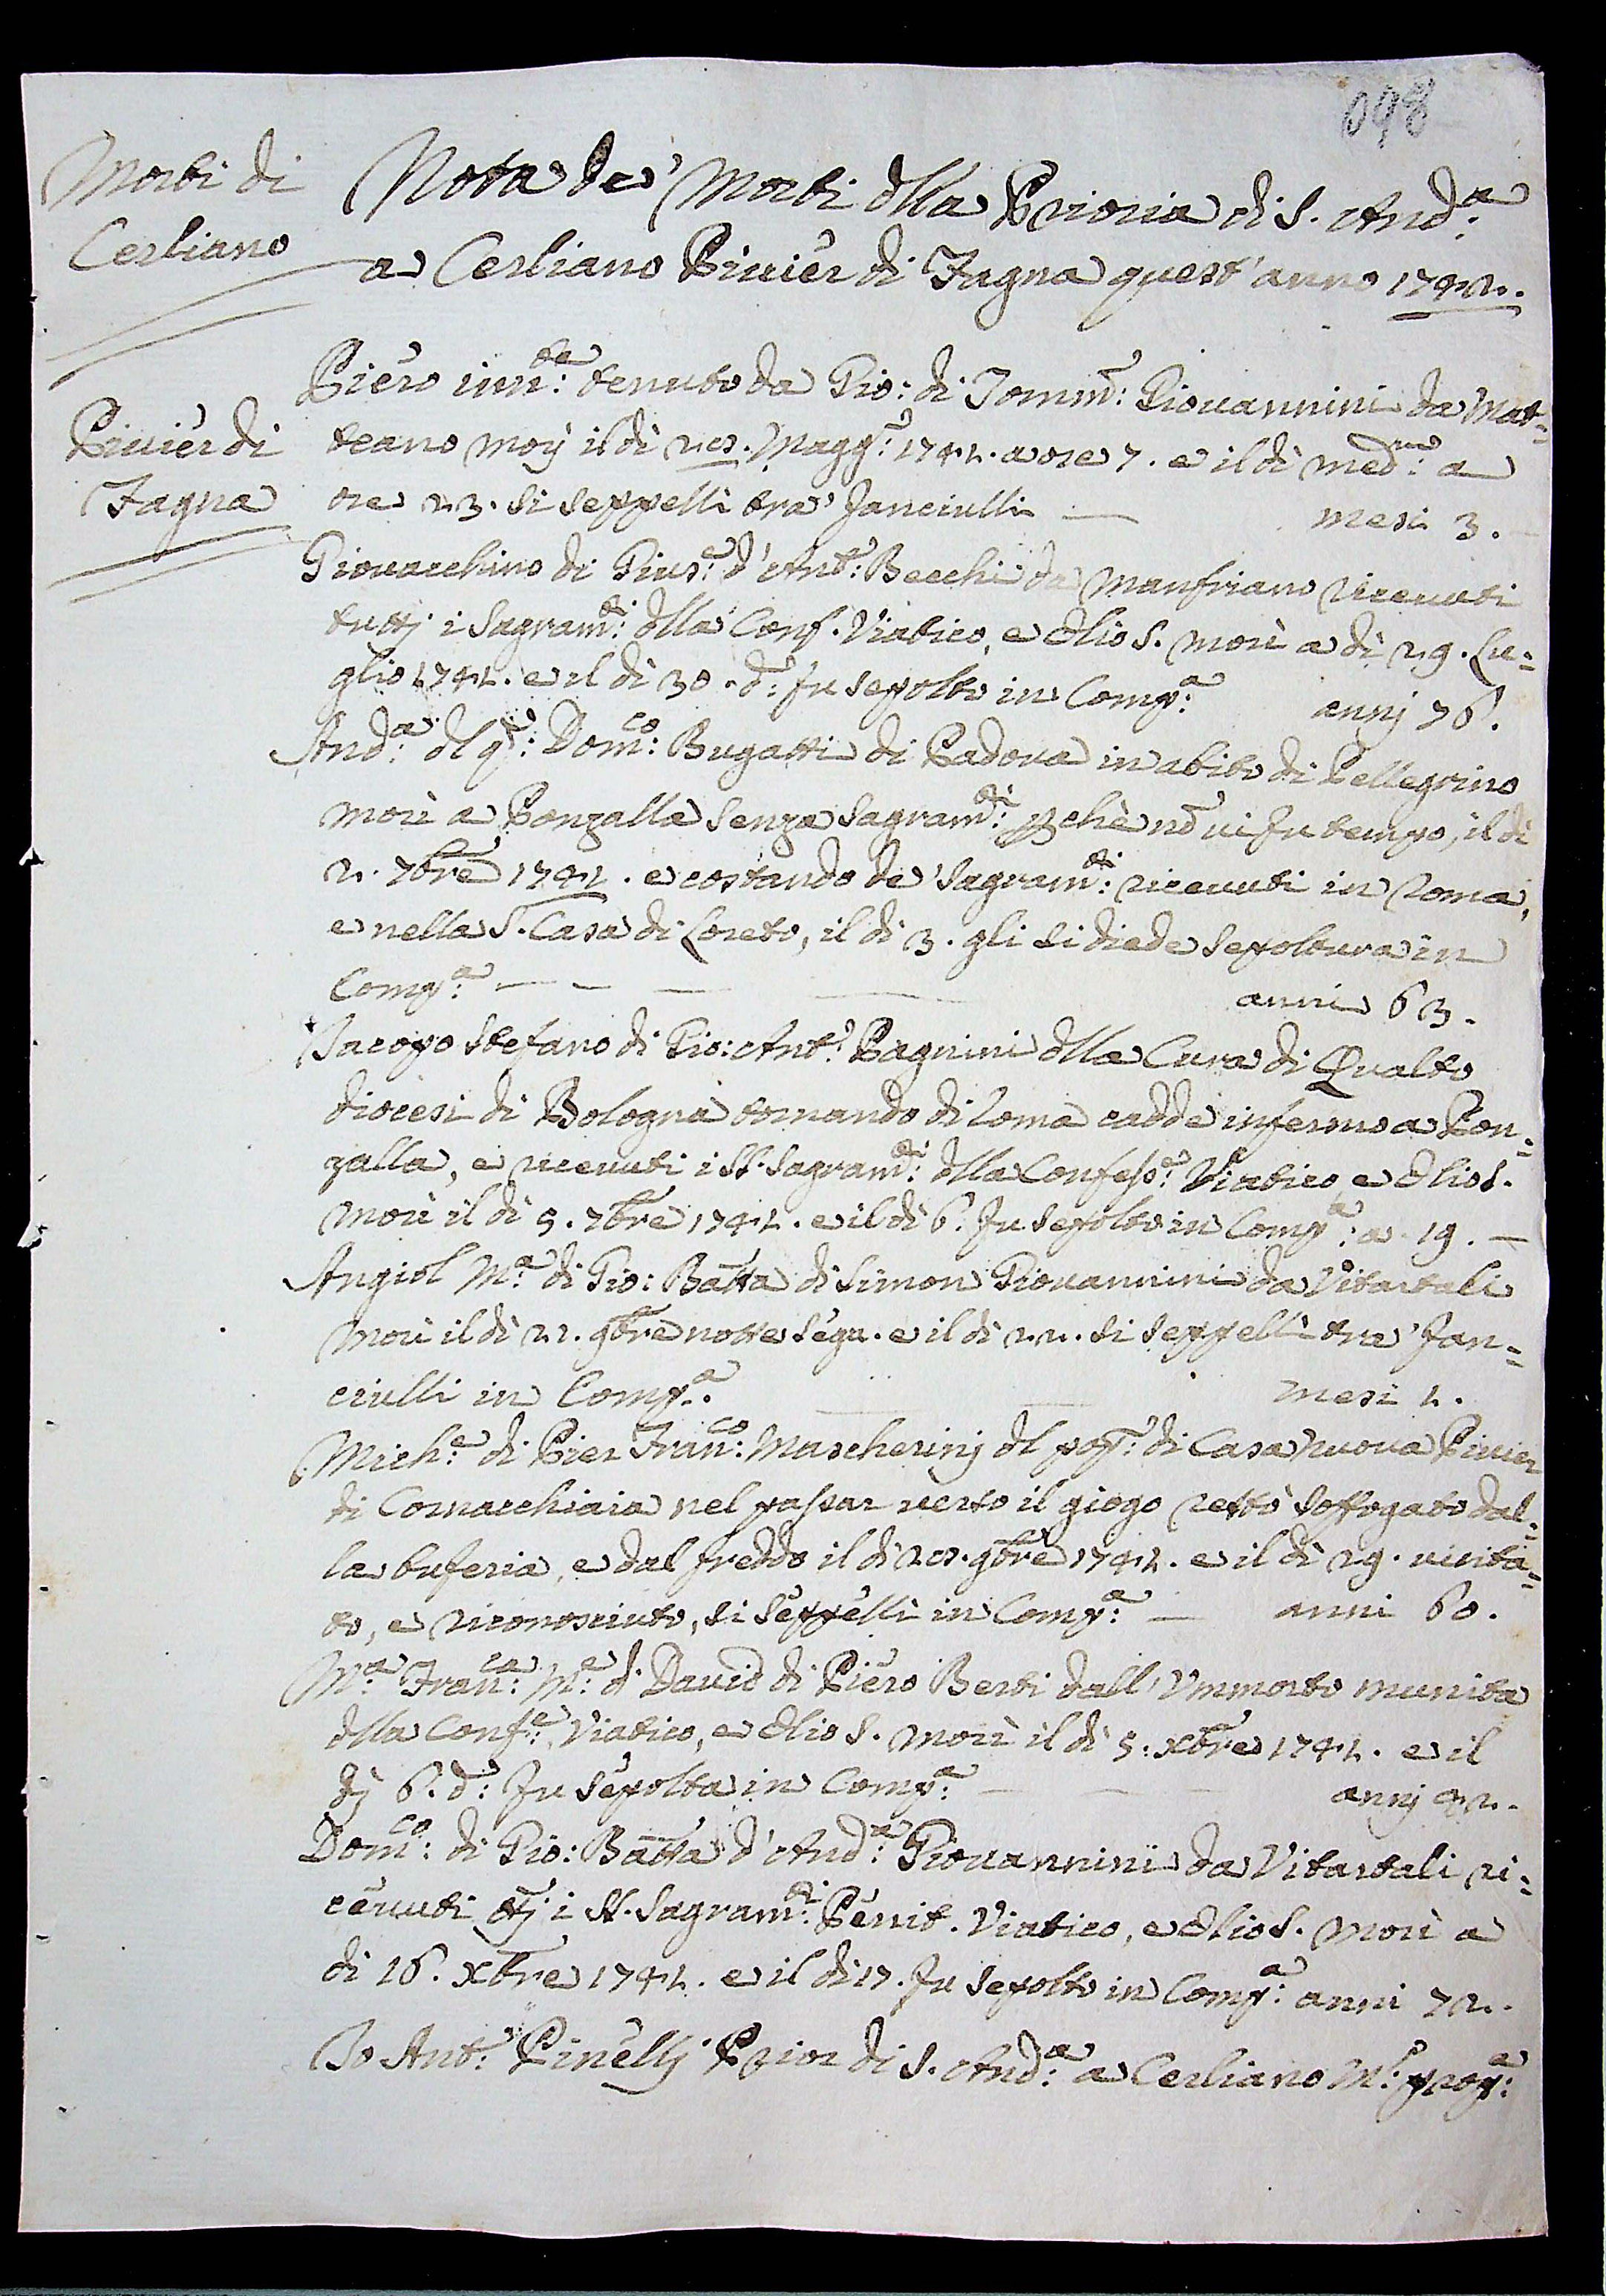 098
Morti di
Cerliano
Nota de' Morti dlla Prioria di S. And.a
a Cerliano Pivier di Fagna quest'anno 1742.
Pivier di
Fagna
Piero inn.te tenuto da Gio: di Tomm.o: Giovannini da Mat=
teano morì il dì Magg.o 1742. a ore 7. e il dì med.mo: a
ore 23. si seppellì tra' fanciulli — mesi 3.
Giovacchino di Gius.e: d'Ant.o: Becchi da Manfriano ricevuti
tuttj i Sagram.ti: dlla Conf. Viatico, e Olio S. morì a dì 29. Lu=
glio 1742. e il dì 30. d.o: fu sepolto in Comp.a: annj 76.
And.a: dl q.m: Dom.co: Bugatti di Padova in abito di Pellegrino
morì a Ronzalla senza Sagram.ti: pchè nõ vi fu tempo, il dì
2. 7bre 1742. e costando de' Sagram.ti: ricevuti in Roma,
e nella S. Casa di Loreto, il dì 3. gli si diede sepoltura in
Comp.a: — — — — anni 63.
Jacopo Stefano di Gio: Ant.o: Pagnini dlla Cura di Qualto
diocesi di Bologna tornando di Roma cadde infermo a Ron=
zalla, e ricevuti i SS. Sagram.ti: dlla Confess.e: Viatico e Olio S.
morì il dì 5. 7bre 1742. e il dì 6. fu sepolto in Comp.a: a. 19. —
Angiol M.a: di Gio: Batta di Simon Giovannini da Vitartali
morì il dì 21. 9bre notte seg.a. e il dì 22. si seppellì tra' fan=
ciulli in Comp.a: — — mesi 2.
Mich.e: di Pier Fran.co: Mascherinj dl pop.o: di Casanuova Pivier
di Cornacchiaia nel passar verso il giogo restò soffogato dal=
la buferia, e dal freddo il dì 9bre 1742. e il dì 29. visita=
to, e riconosciuto, si seppellì in Comp.a: — anni 60.
M.a: Fran.ca: M.e: di David di Piero Berti dall'Ummorto munita
dlla Conf.e: Viatico, e Olio S. morì il dì 5: Xbre 1742. e il
dj 6. d.o: fu sepolta in Comp.a: — — — annj 42.
Dom.co: di Gio: Batta d'And.a: Giovannini da Vitartali ri=
cevuti ttj i SS. Sagram.ti: Penit. Viatico, e Olio S. morì a
dì 16. Xbre 1742. e il dì 17. fu sepolto in Comp.a: anni 72.
Io Ant.o: Pinellj Prior di S. And.a: a Cerliano M.o: prop.a: